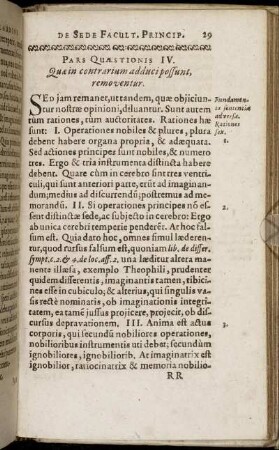 DE SEDE FACULT. PRINCIP. 29
PARS QUÆSTIONIS IV.
Quæ in contrarium adduci possunt,
removentur.
SED jam remanet, ut tandem, quæ objiciun-
tur nostræ opinioni, diluantur. Sunt autem
tum rationes, tum auctoritates. Rationes hæ
sunt: I. Operationes nobiles & plures, plura
debent habere organa propria, & adæquata.
Sed actiones principes sunt nobiles, & nume-
tres. Ergo & tria instrumenta distincta habere
debent. Quare cùm in cerebro sint tres ventri-
culi, qui sunt anteriori parte, erût ad imaginan-
dum; medius ad discurrendû; postremus ad me-
morandû. II. Si operationes principes nô es-
sent distinctæ sede, ac subjecto in cerebro: Ergo
ab unica cerebri temperie penderêt. At hoc fal-
sum est. Quia dato hoc, omnes simul læderen-
tur, quod rursus falsum est, quoniam lib. de differ.
sympt. c. 2. & 4. de loc. aff. 2. una læditur altera ma-
nente illæsa, exemplo Theophili, prudenter
quidem disserentis, imaginantis tamen, tibici-
nes esse in cubiculo; & alterius, qui singulis va-
sis rectè nominatis, ob imaginationis integri-
tatem, ea tamẽ jussus projicere, projecit, ob di-
scursus depravationem. III. Anima est actus
corporis, qui secundũ nobiliores operationes,
nobilioribus instrumentis uti debet; secundùm
ignobiliores, ignobilioribus. At imaginatrix est
ignobilior, ratiocinatrix & memoria nobilio-
RR
Fundamen-
ta sententiæ
adversæ.
Rationes
sex.
1.
2.
3.